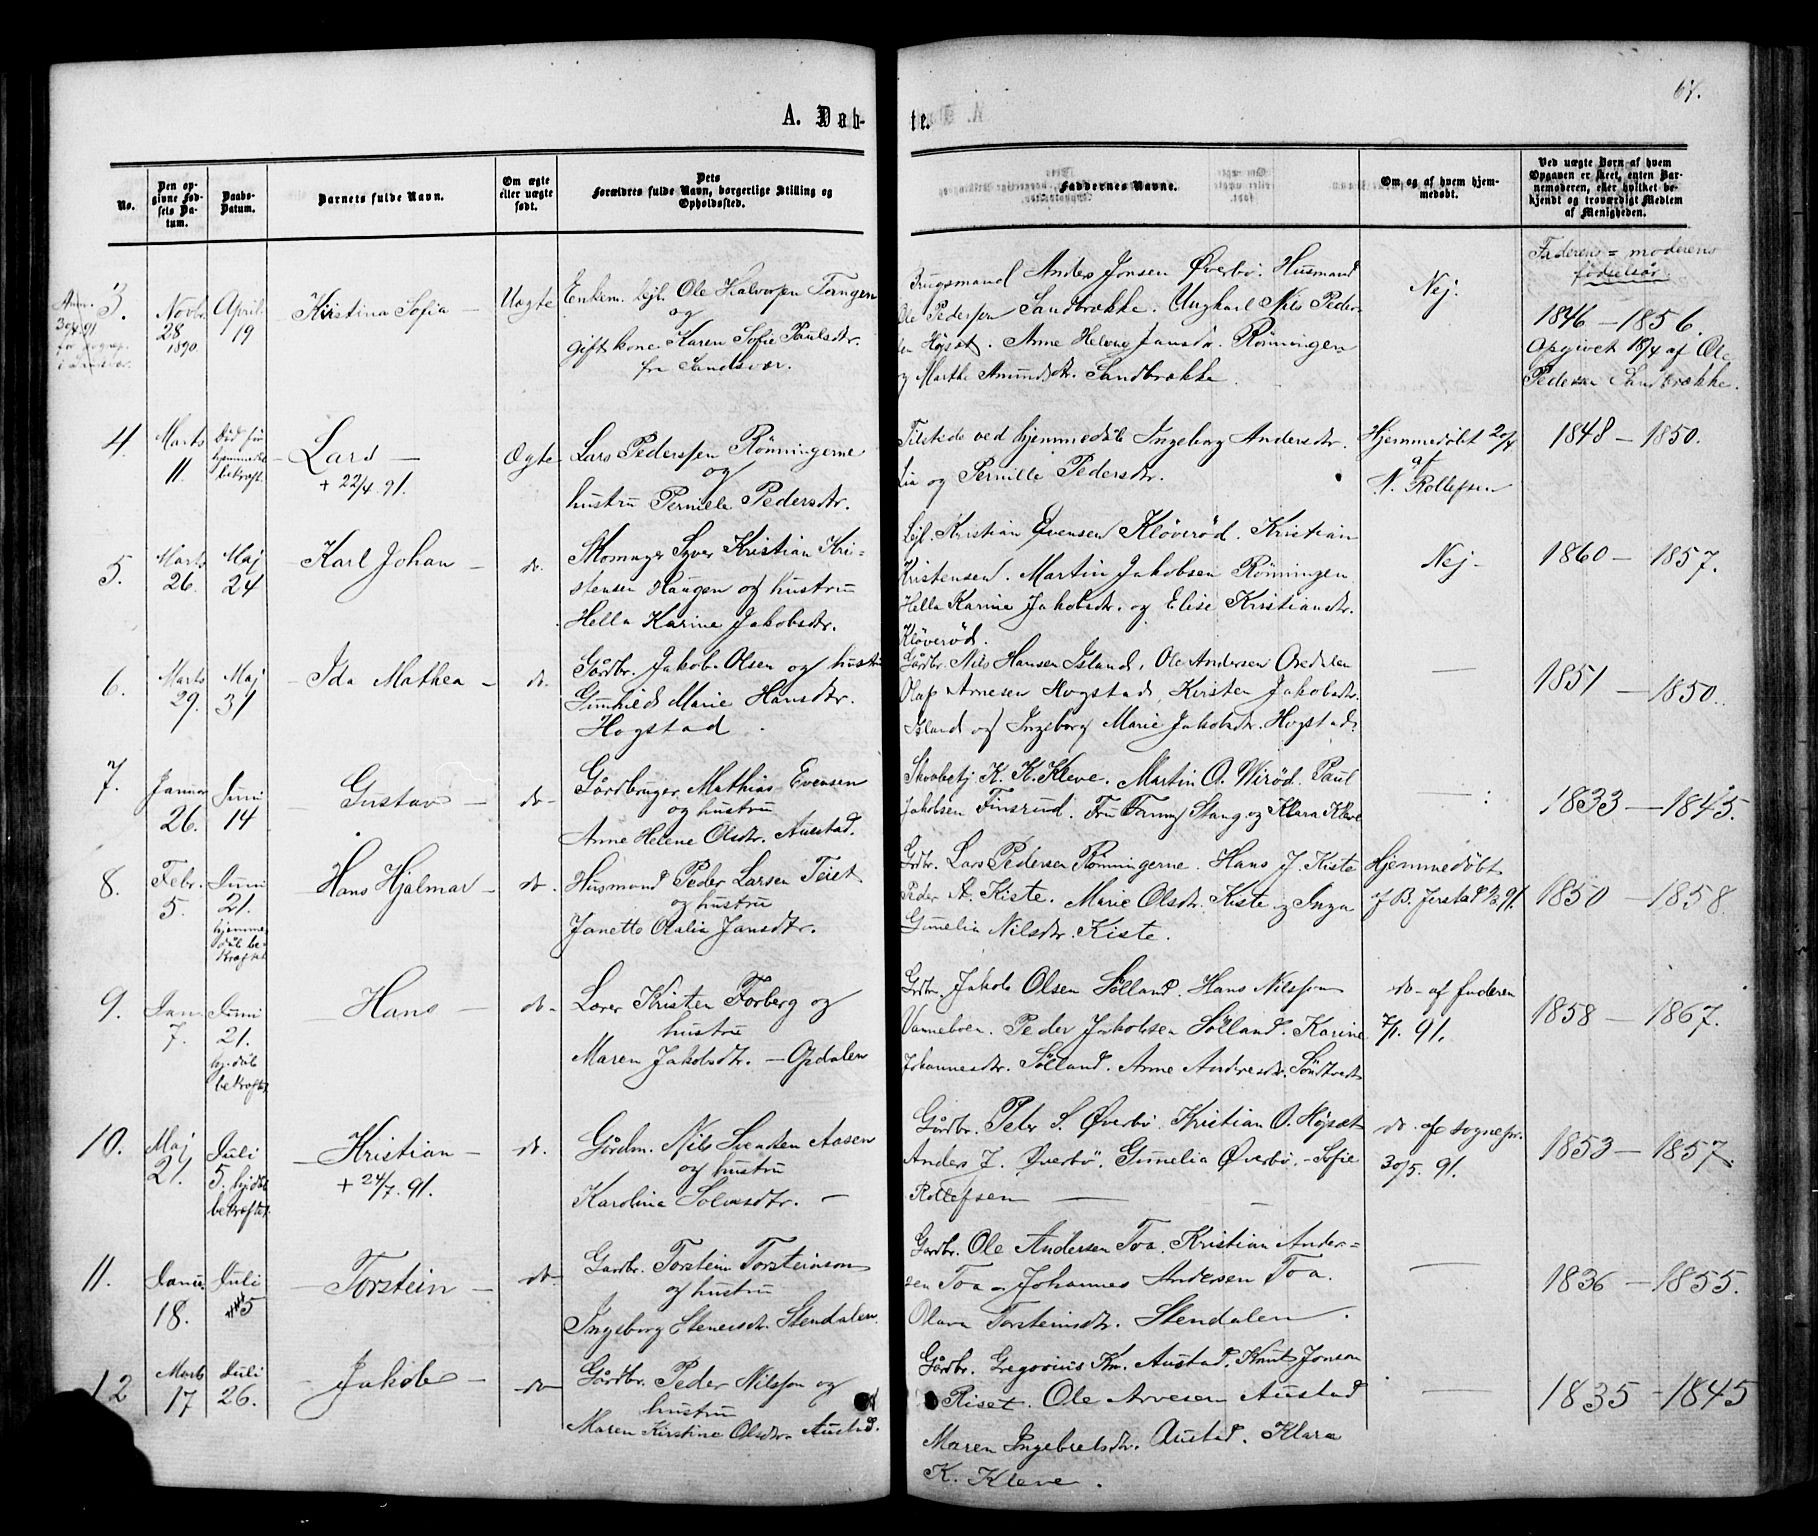 67.
A. Døb-
te.
No.
Den op-
givne Fød-
sels Da-
tum.
Daabs-
Datum.
Barnets fulde Navn.
Om ægte
eller uægte
født.
Dets
Forældres fulde Navn, borgerlige Stilling og
Opholdssted.
Faddernes Navne.
Om og af hvem hjem-
medøbt.
Ved uægte Børn af hvem
Opgaven er skeet, enten Bar-
nemoderen, eller hvilket be-
kjendt og troværdigt Medlem
af Menigheden.
Faderens = moderens
fødselsår
Anm.
30/4 91
3.
Novbr
28
1890
April
19
Kirstina Sofia
Uægte
Enkem. Lejl. Ole Halvorsen Torngen
og
gift kone Karen Sofie Paulsdtr.
fra Sandsvær.
Brugsmand Anders Jonsen Øverbø. Husmand
Ole Pedersen Sandbrække. Ungkarl Nils Peder-
sen Højset. Anne Helene Jansdtr. Rønningen
og Marthe Amundsdtr. Sandbrække.
Nej.
1846 – 1856.
Opgivet 18/4 af Ole
Pedersen Sandbrække.
4.
Marts
11.
Død før
hjemmedåb
bekræft.
Lars
+ 22/4. 91.
Ægte
Lars Pederssen Rønningerne
og
hustru Pernille Pedersdtr.
Tilstede ved hjemmedåb Ingeborg Andersdtr.
Lia og Pernille Pedersdtr.
Hjemmedøbt 20/4
af
N. Rollefsen
1848 – 1850.
5.
Marts
26.
Maj
24
Karl Johan
do.
Skomager Syver Kristian Kri-
stensen Haugen og hustru
Hella Karine Jakobsdtr.
Lejl. Kristian Evensen Kløverød. Kristian
Kristensen. Martin Jakobsen Rønningen
Hella Karine Jakobsdtr. og Elise Kristiansdtr.
Kløverød.
Nej
1860 – 1857.
6.
Marts
29.
Maj
31
Ida Mathea
do.
Gårdbr. Jakob Olsen og hustru
Gunhild Marie Hansdtr.
Hogstad
Gårdbr. Nils Hansen Island, Ole Andersen Oredalen
Olaf Arnesen Hogstad, Kirsten Jakobsdtr.
Island og Ingeborg Marie Jakobsdtr. Hogstad.
—
1851 – 1850.
7.
Januar
26.
Juni
14
Gustav
do.
Gårdbruger Mathias Evensen
og hustru
Anne Helene Olsdtr. Austad.
Skovbetj. K. K. Kleve. Martin O. Wirød. Paul
Jakobsen Finsrud. Fru Fanny Stang og Klara Kleve
—
1833 – 1845.
8.
Febr.
5.
Juni
21.
hjemme-
dåb be-
kræftet
Hans Hjalmar
do.
Husmand Peder Larsen Teiet
og hustru
Janette Oralia Jansdtr.
Grdbr. Lars Pedersen Rønningerne. Hans J. Kiste
Peder A. Kiste. Marie Olsdtr. Kiste og Inga
Gunelia Nilsdtr. Kiste.
Hjemmedøbt
af B. Jerstad 91.
1850 – 1858.
9.
Jan
7.
Juni
21.
hj.dåb
bekræftet
Hans
do.
Lærer Kristen Forberg og
hustru
Maren Jakobsdtr. – Opdalen
Grdbr. Jakob Olsen Sølland. Hans Nilssen
Vanneboen. Peder Jakobsen Sølland. Karine
Johannesdtr. Sølland. Anne Andresdtr. Søndtvedt
do. af faderen
7/1. 91.
1858 – 1867.
10.
Maj
21.
Juli
5. hj.dåb
bekræftet.
Kristian
+ 24/7. 91.
do.
Gårdm. Nils Svensen Aasen
og hustru
Karoline Solvesdtr. –
Gårdbr. Peder S. Øverbø. Kristian O. Højset
Anders J. Øverbø. Gunelia Øverbø. – Sofie
Rollefsen
do. af sognepr.
30/5. 91.
1853 – 1857.
11.
Janu.
18.
Juli
5
Torstein
do
Gardbr. Torstein Torsteinson
og hustru
Ingeborg Stenersdtr. Stendalen.
Gardbr. Ole Andersen Toa. Kristian Ander-
sen Toa – Johannes Andersen Toa.
Olava Torsteinsdtr. Stendalen.
—
1836 – 1855.
12
Marts
17
Juli
26.
Jakob
do
Gårdbr. Peder Nilsson og
hustru
Maren Kirstine Olsdtr. Austad.
Gårdbr. Gregorius Kn. Austad. Knut Jonson
Riset. Ole Arvesen Austad
Maren Ingebretsdtr. Austad. Klara
K. Kleve.
—
1835 – 1845